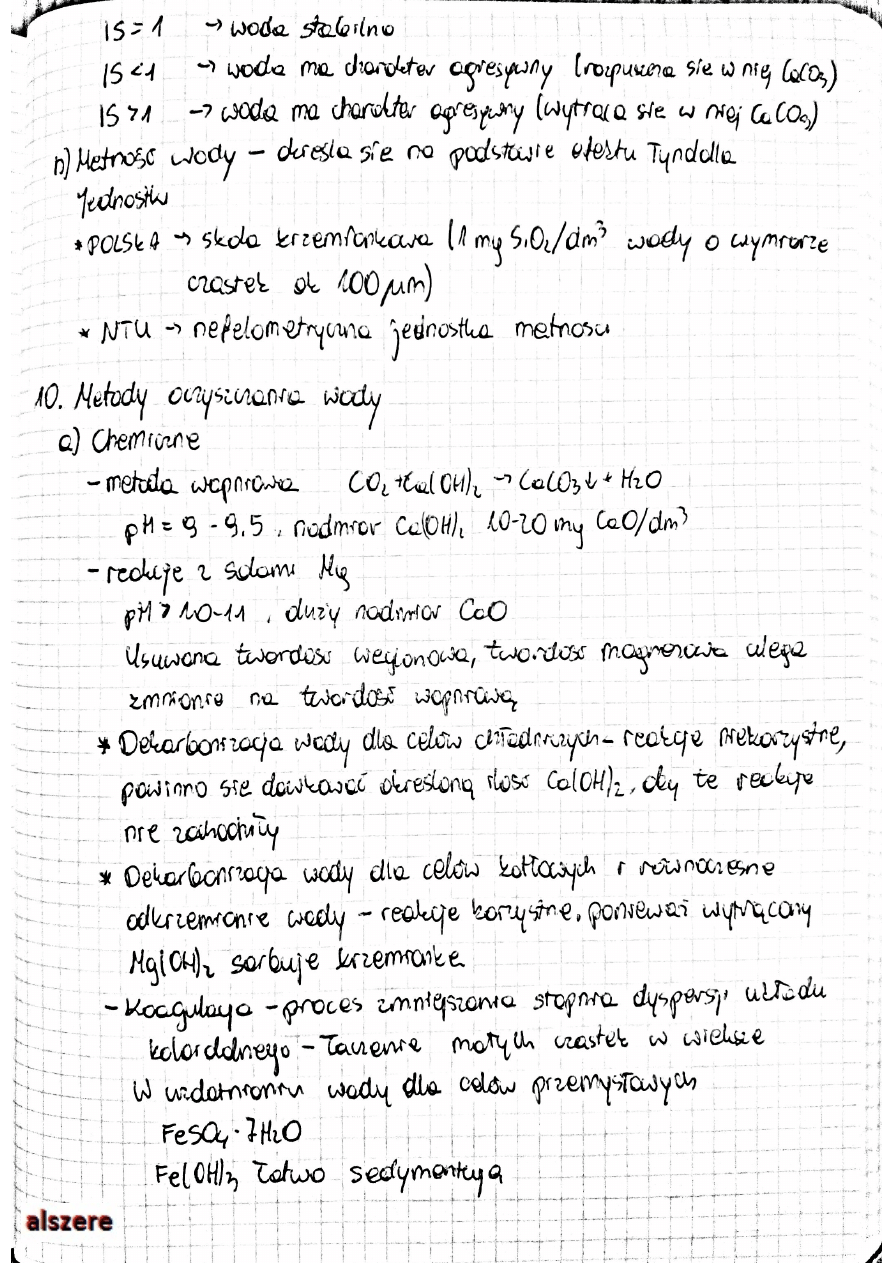 IS = 1 → woda stabilna
IS < 1 → woda ma charakter agresywny (rozpuszcza sie w niej CaCO₃)
IS > 1 → woda ma charakter agresywny (wytrąca sie w niej CaCO₃)
h) Metność wody – określa sie na podstawie efektu Tyndalla
Jednostki
* POLSKA → skala krzemionkowa (1 mg SiO₂/dm³ wody o wymiarze
czastek ok 100 μm)
* NTU → nefelometryczna jednostka metnosci
10. Metody oczyszczania wody
a) Chemiczne
- metoda wapniowa CO₂ + Ca(OH)₂ → CaCO₃↓ + H₂O
pH = 9 - 9,5 , nadmiar Ca(OH)₂ 10-20 mg CaO/dm³
- reakcje z solami Mg
pH > 10-11 , duży nadmiar CaO
Usuwana twardość weglonowa, twardość magnezowa ulega
zmianie na twardość wapniową
* Dekarbonizacja wody dla celów chłodniczych – reakcje niekorzystne,
powinno sie dawkować określoną ilość Ca(OH)₂, aby te reakcje
nie zachodziły
* Dekarbonizacja wody dla celów kotłowych i równoczesne
odkrzemianie wody – reakcje korzystne, ponieważ wytrącany
Mg(OH)₂ sorbuje krzemionke
- Koagulacja – proces zmniejszania stopnia dyspersji układu
koloidalnego – łaczenie małych czastek w wieksze
W uzdatnianiu wody dla celów przemysłowych
FeSO₄ · 7H₂O
Fe(OH)₃ łatwo sedymentują
alszere